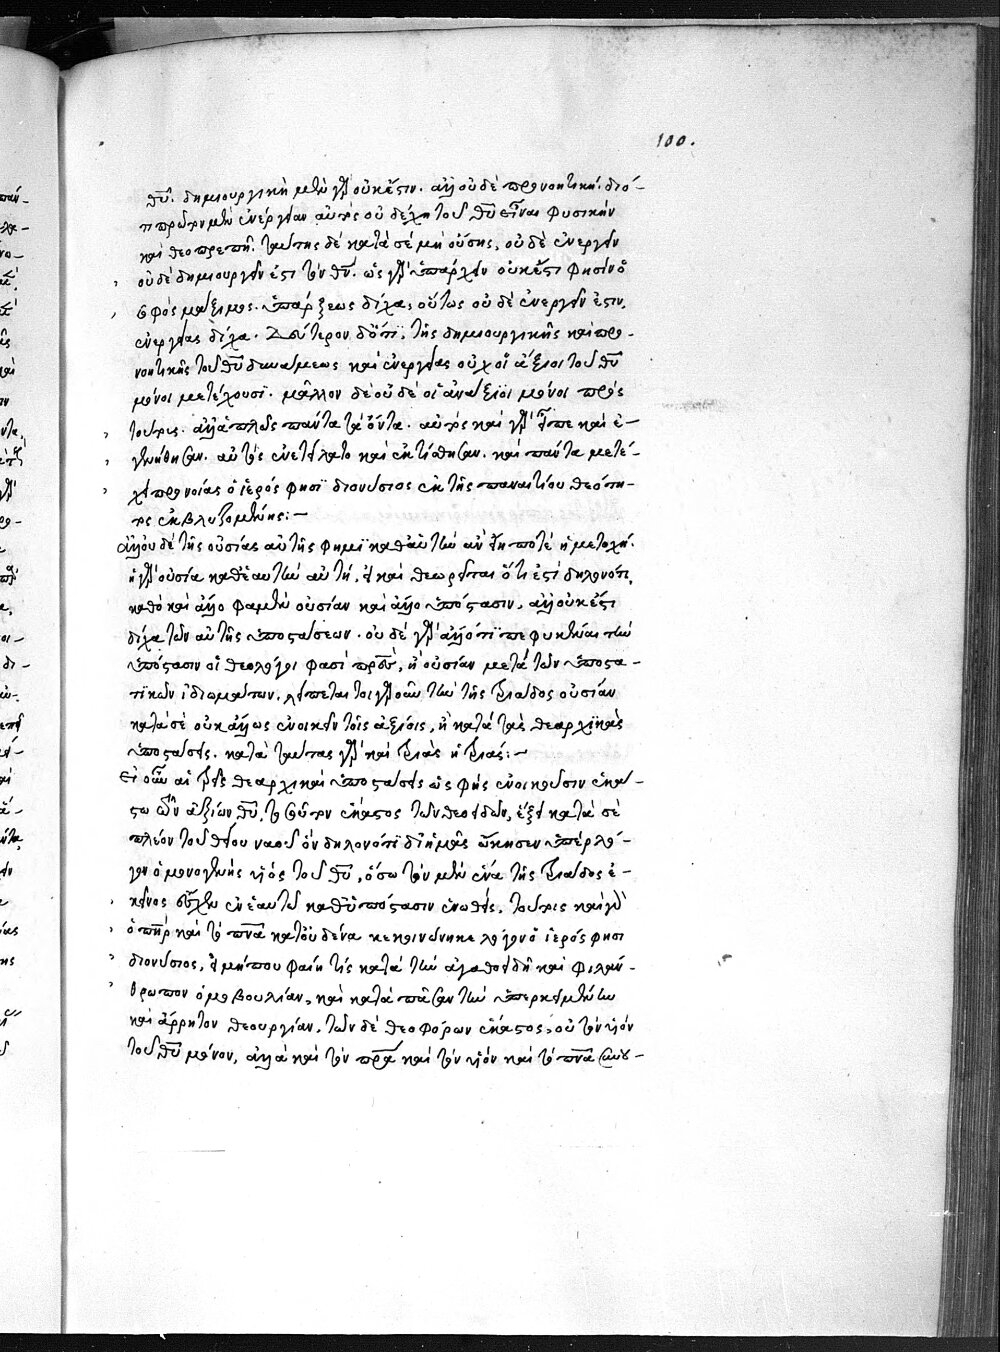 100.
θῦ. δημιουργικὴ μὲν γὰρ οὐκ ἔστιν. ἀλλ' οὐδὲ προνοητική. διό-
τι πρῶτον μὲν ἐνέργειαν αὐτὸς οὐ δέχῃ τοῦ θῦ εἶναι φυσικὴν
καὶ θεοπρεπῆ. ταύτης δὲ κατὰ σὲ μὴ οὔσης, οὐδὲ ἐνεργεῖν
οὐδὲ δημιουργεῖν ἔστι τὸν θν. ὡς γὰρ ὑπάρχειν οὐκ ἔστι φησὶν ὁ
σοφὸς μάξιμος. ὑπάρξεως δίχα, οὕτως οὐδὲ ἐνεργεῖν ἔστιν,
ἐνεργείας δίχα. Δεύτερον διότι, τῆς δημιουργικῆς καὶ προ-
νοητικῆς τοῦ θῦ δυνάμεως καὶ ἐνεργείας οὐχ οἱ ἄξιοι τοῦ θῦ
μόνοι μετέχουσι. μᾶλλον δὲ οὐδὲ οἱ ἀνάξιοι μόνοι πρὸς
τούτοις. ἀλλ' ἁπλῶς πάντα τὰ ὄντα. αὐτὸς καὶ γὰρ εἶπε καὶ ἐ-
γενήθησαν. αὐτὸς ἐνετείλατο καὶ ἐκτίσθησαν. καὶ πάντα μετέ-
χει προνοίας ὁ ἱερός φησι διονύσιος ἐκ τῆς παναιτίου θεότη-
τος ἐκβλυζομένης:-
ἀλλ' οὐδὲ τῆς οὐσίας αὐτῆς φημι καθ' αὑτὴν ἂν εἴη ποτὲ ἡ μετοχή.
ἡ γὰρ οὐσία καθ' ἑαυτὴν αὐτή, εἰ καὶ θεωρεῖται ὅτι ἐστὶ δηλονότι,
καθὸ καὶ ἄλλο φαμὲν οὐσίαν καὶ ἄλλο ὑπόστασιν, ἀλλ' οὐκ ἔστι
δίχα τῶν αὐτῆς ὑποστάσεων. οὐδὲ γὰρ ἄλλό τι πεφυκέναι τὴν
ὑπόστασιν οἱ θεολόγοι φασὶ προς, ἢ οὐσίαν μετὰ τῶν ὑποστα-
τικῶν ἰδιωμάτων, λείπεται τοιγαροῦν τὴν τῆς τριάδος οὐσίαν
κατὰ σὲ οὐκ ἄλλως ἐνοικεῖν τοῖς ἀξίοις, ἢ κατὰ τὰς θεαρχικὰς
ὑποστάσεις. κατὰ ταύτας γὰρ καὶ τριὰς ἡ τριάς:-
Εἰ οὖν αἱ τρεῖς θεαρχικαὶ ὑποστάσεις ὡς φῂς ἐνοικοῦσιν ἑκά-
στω τῶν ἀξίων θῦ, τοσοῦτον ἕκαστος τῶν θεοειδῶν, ἕξει κατὰ σὲ
πλέον τοῦ θείου ναοῦ ὃν δηλονότι δι' ἡμᾶς ᾤκησεν ὑπὲρ λό-
γον ὁ μονογενὴς υἱὸς τοῦ θῦ, ὅσω τὸν μὲν ἕνα τῆς τριάδος ἐ-
κεῖνος ἔσχεν ἐν ἑαυτῷ καθ' ὑπόστασιν ἑνωθείς. τούτοις καὶ γὰρ
ὁ πὴρ καὶ τὸ πνᾶ κατ' οὐδένα κεκοινώνηκε λόγον ὁ ἱερός φησι
διονύσιος, εἰ μήπου φαίη τις κατὰ τὴν ἀγαθοειδῆ καὶ φιλάν-
θρωπον ὁμοβουλίαν, καὶ κατὰ πᾶσαν τὴν ὑπερκειμένην
καὶ ἄρρητον θεουργίαν. τῶν δὲ θεοφόρων ἕκαστος, οὐ τὸν υἱὸν
τοῦ θῦ μόνον, ἀλλὰ καὶ τὸν πρᾶ καὶ τὸν υἱὸν καὶ τὸ πνᾶ